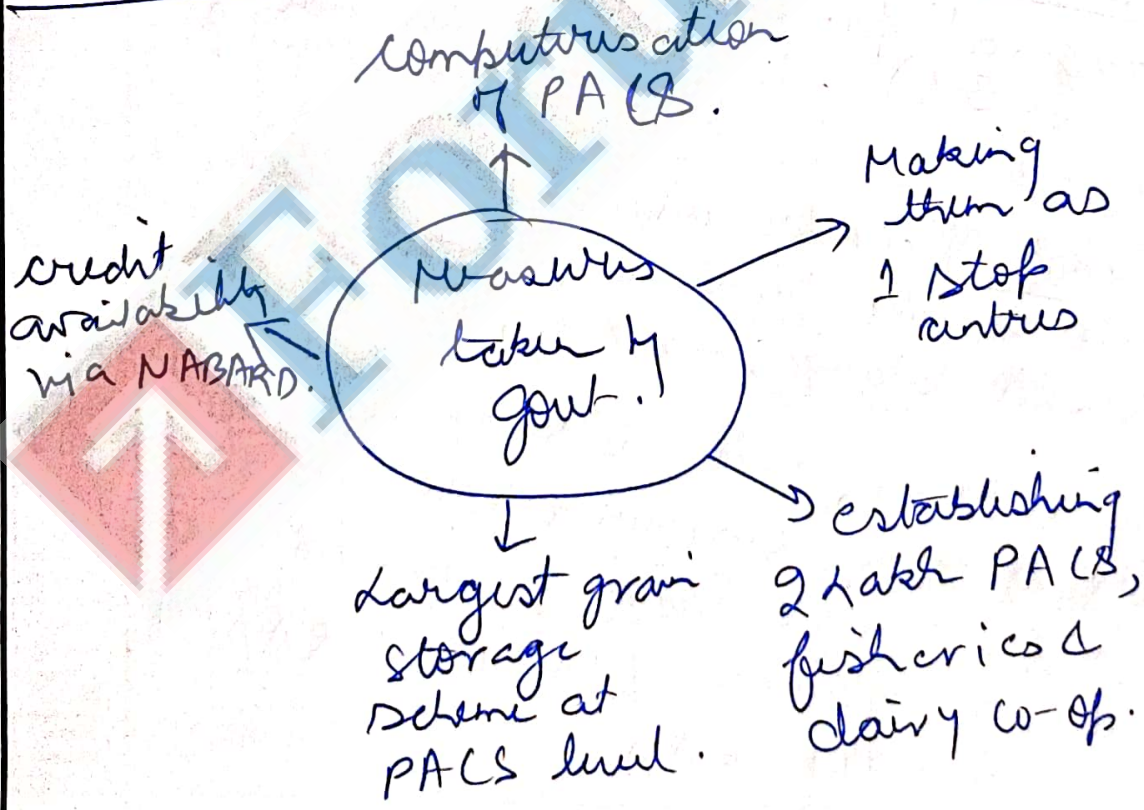 computerisation
of PACS.
Making
them as
1 stop
centres
credit
availability
via NABARD.
Measures
taken by
govt.
establishing
2 Lakh PACS,
fisheries &
dairy co-op.
Largest grain
storage
scheme at
PACS level.